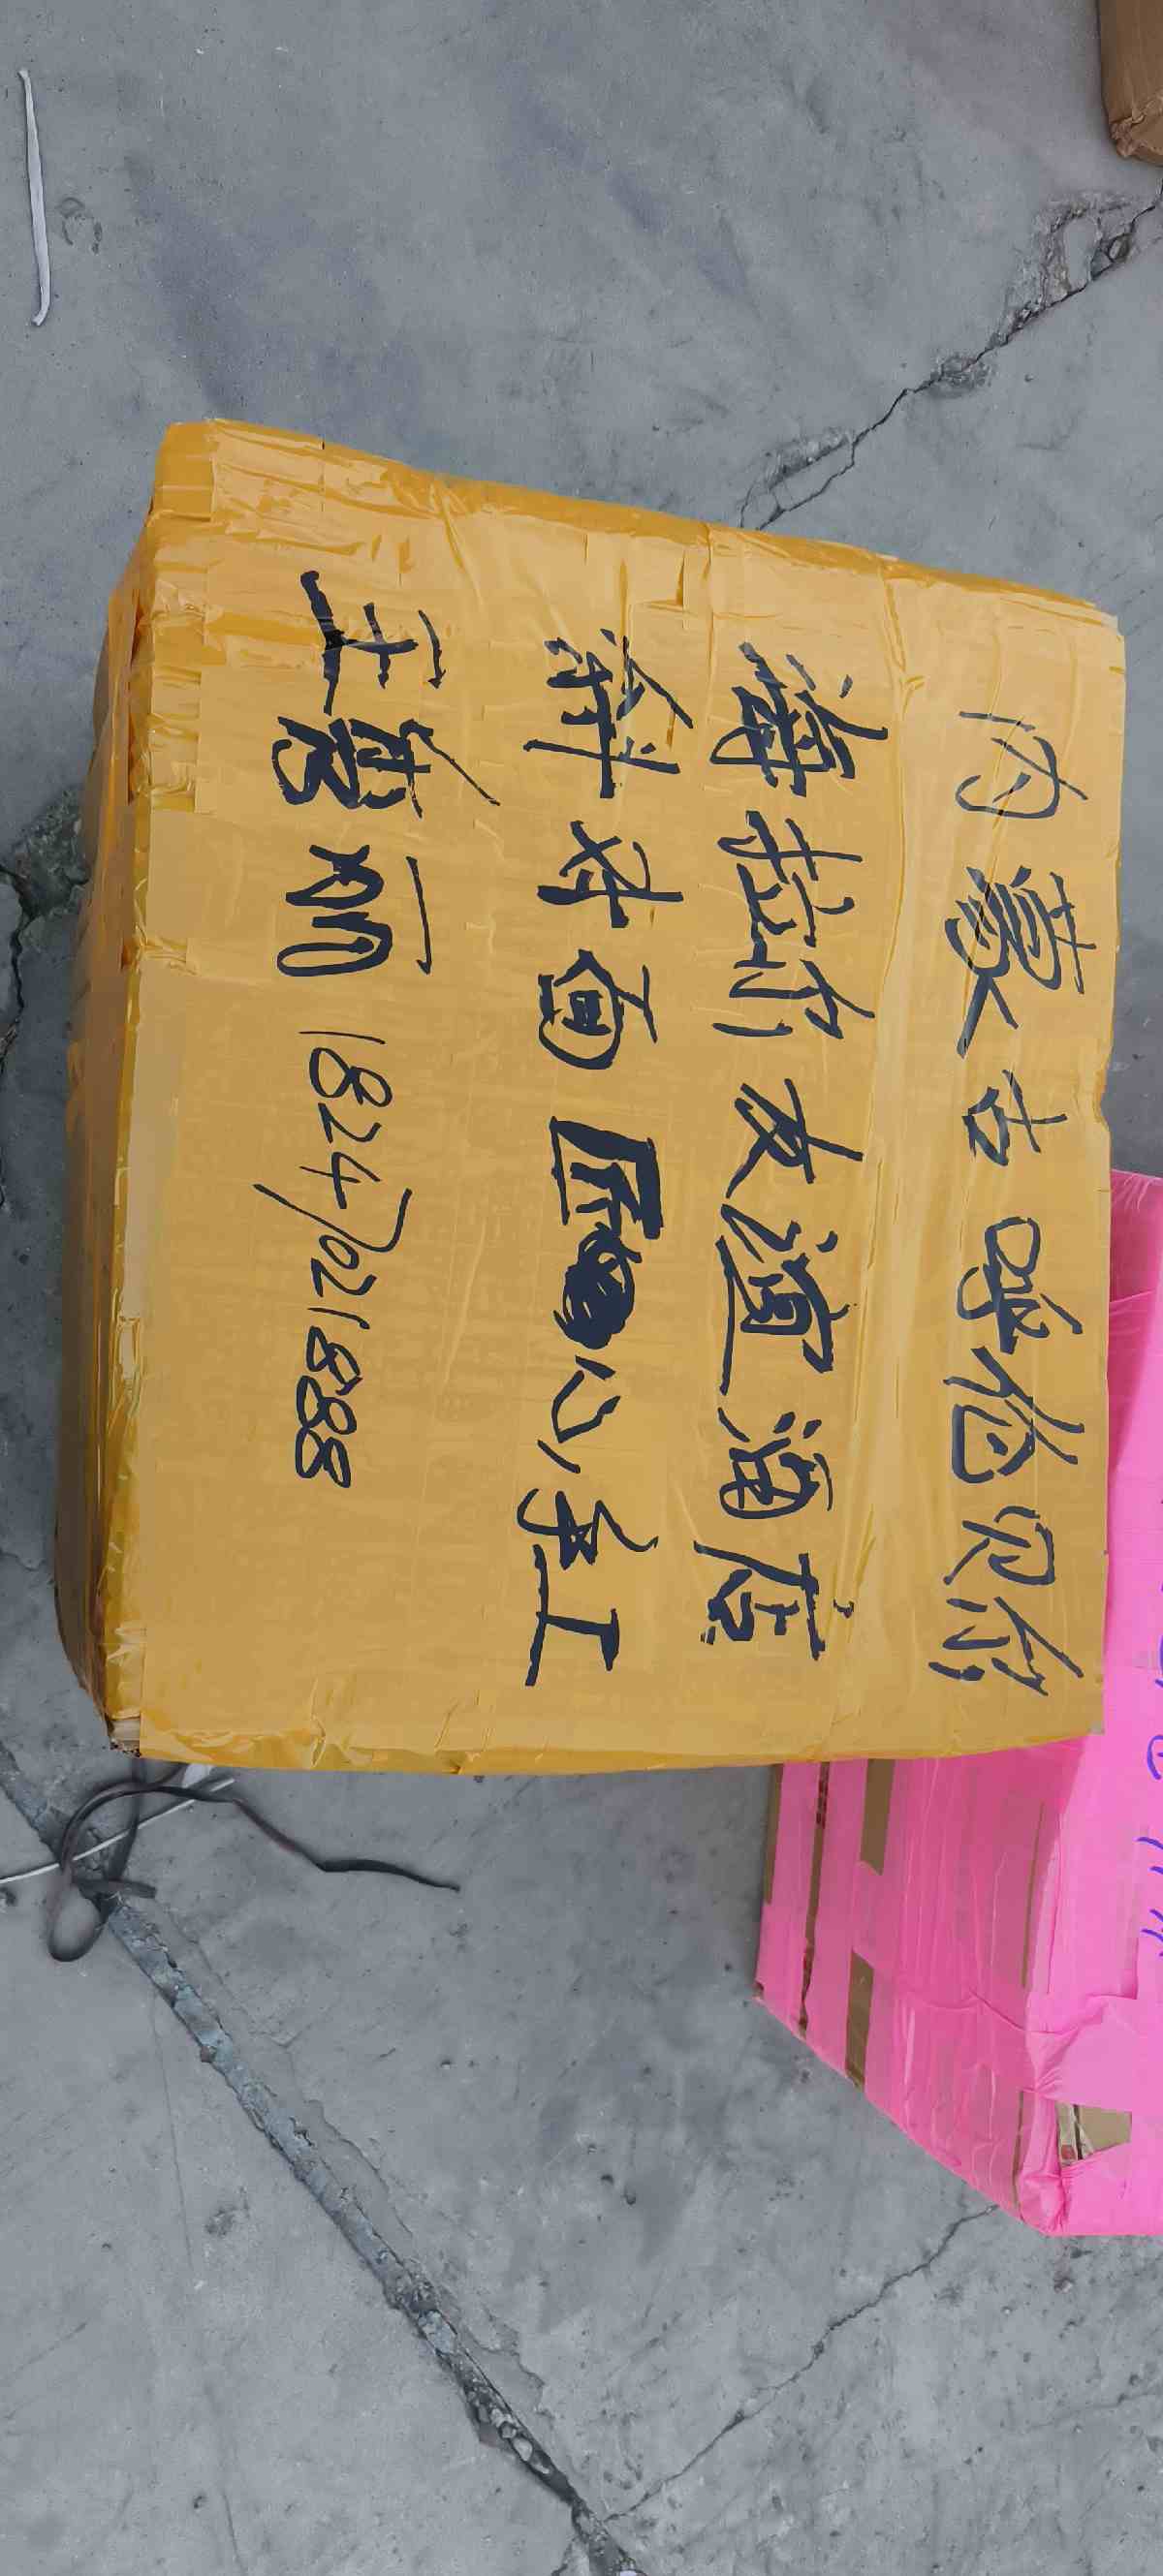 内蒙古呼伦贝尔
海拉尔友谊酒店
斜对面匠心手工
王慧丽 18247021888